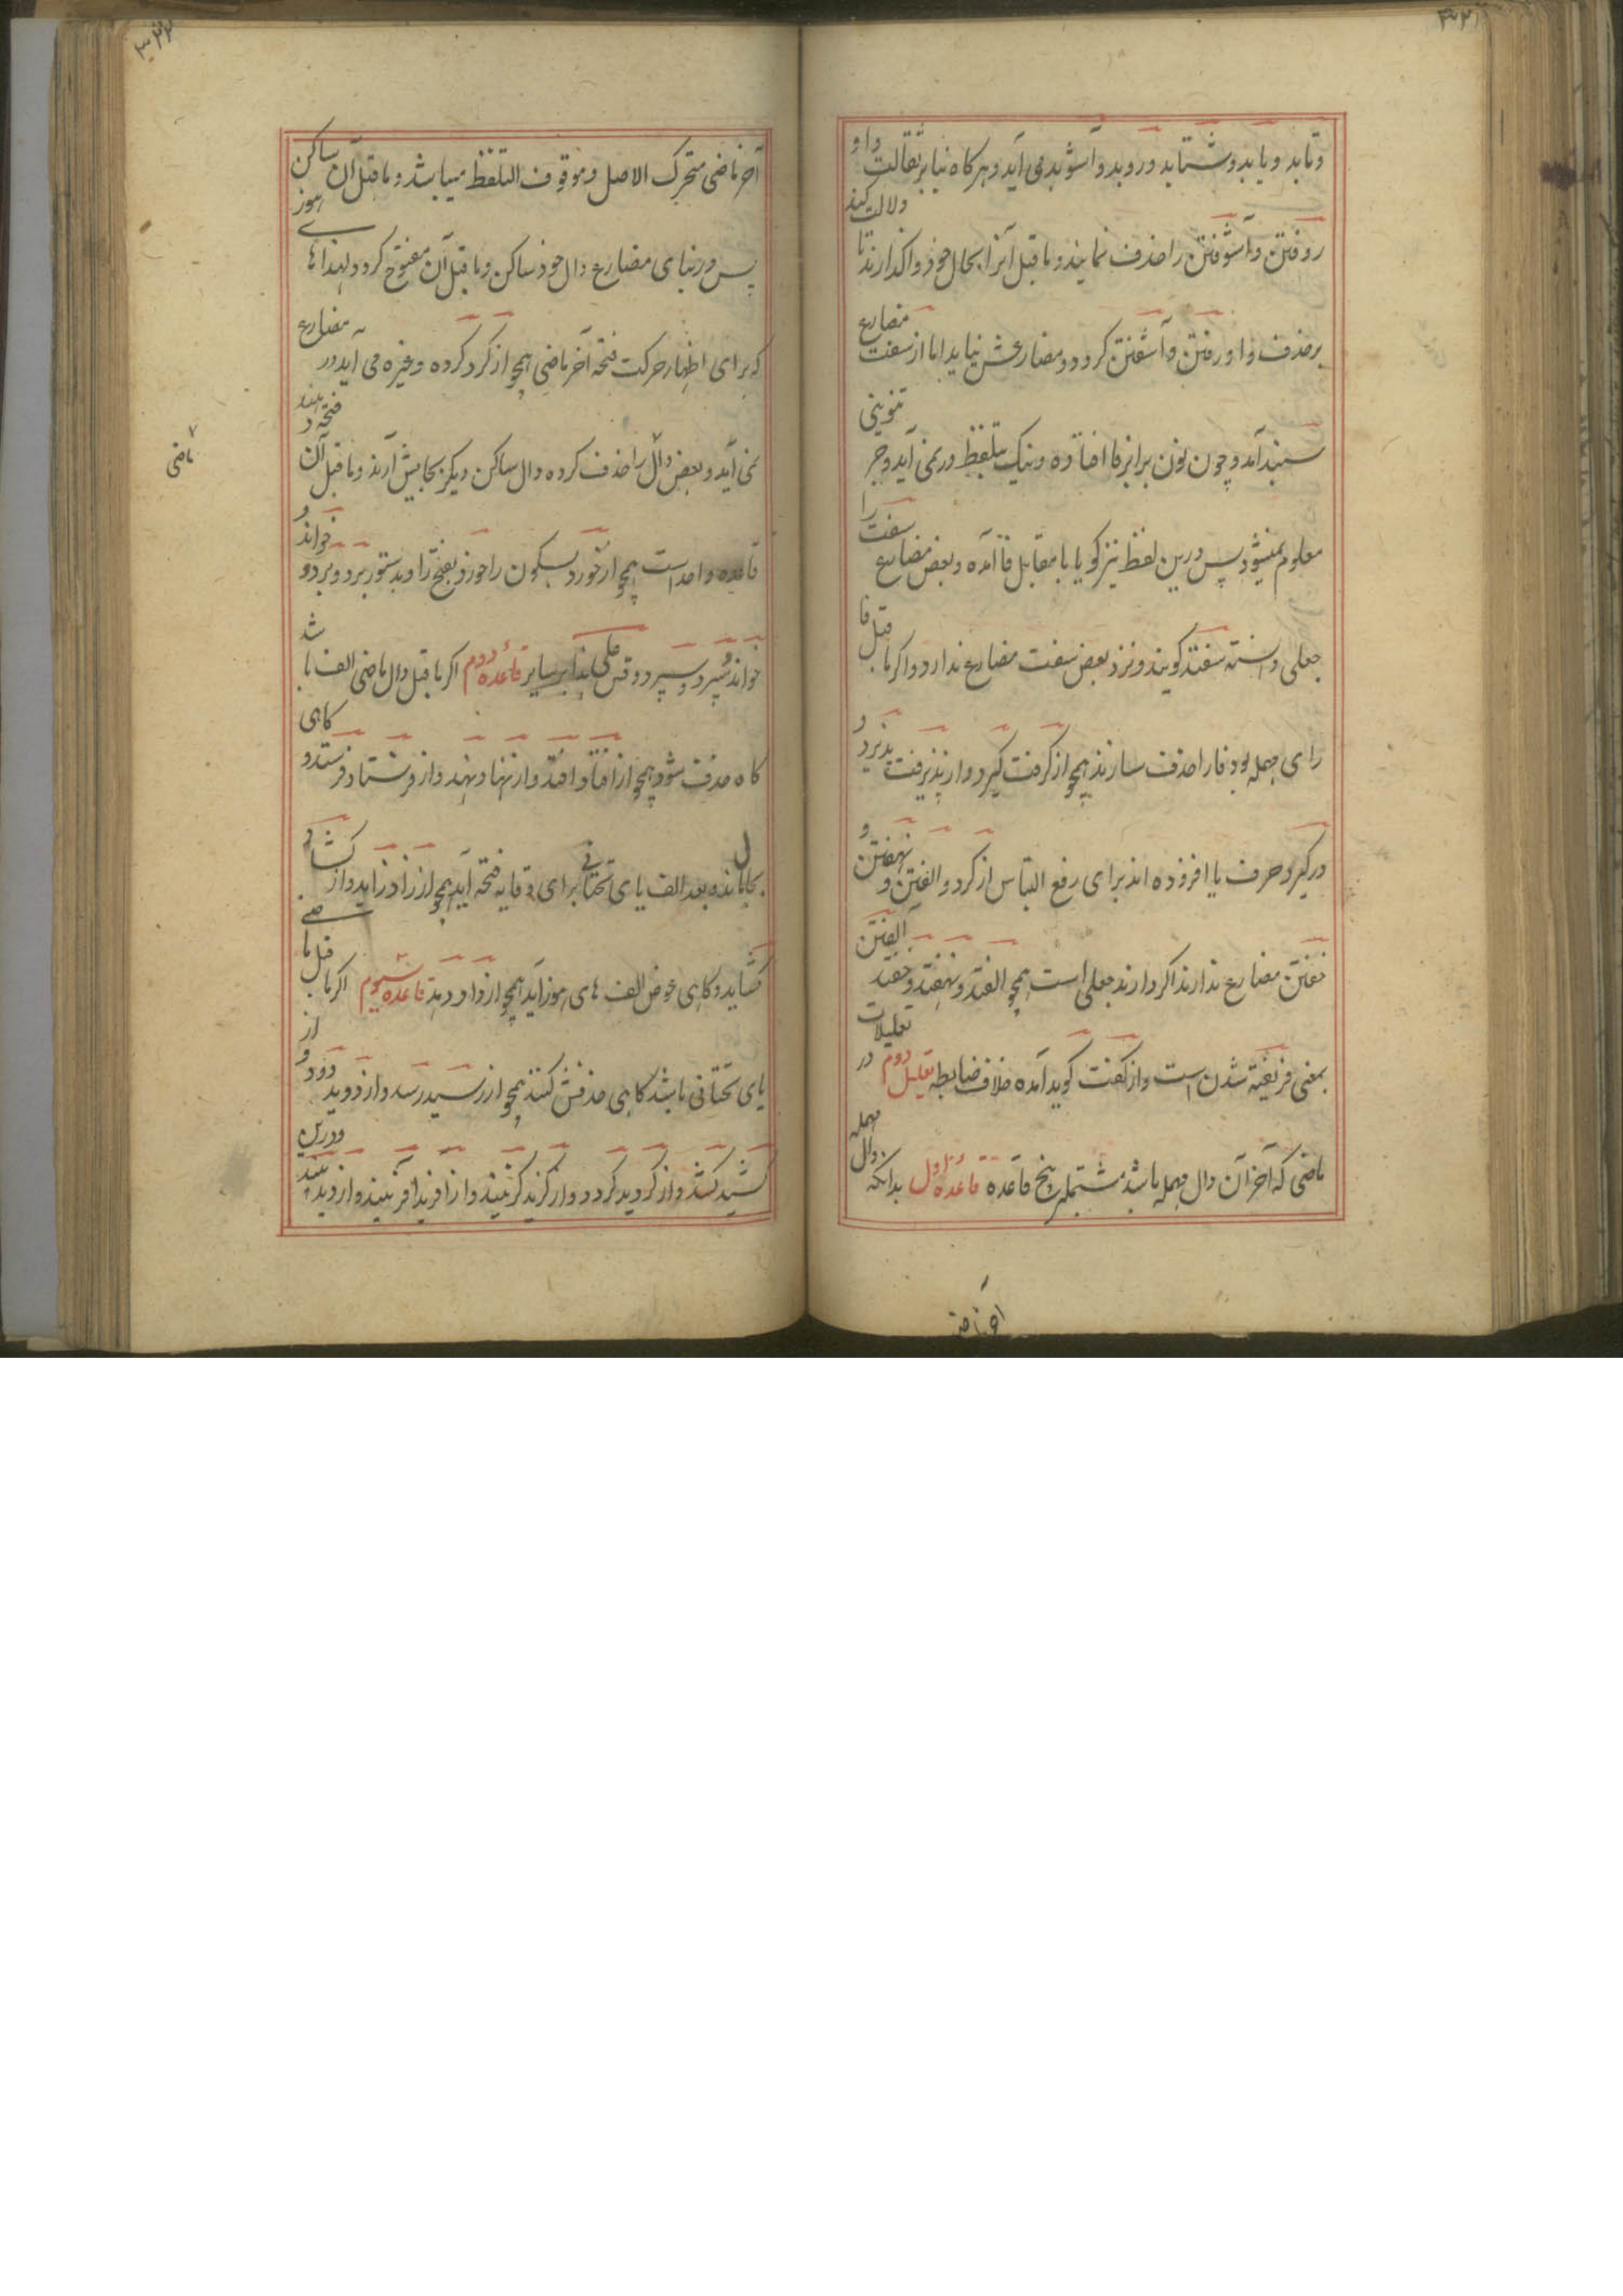 ۳۲۱
وتابد ویابد وشتابد وروبد وآشوبد می آید وهرکاه بنابر ثقالت واو
روفتن وآشوفتن را حذف نمایند وما قبل آنرا بحال خود واکذارند تا دلالت کند
بر حذف واو رفتن وآشفتن کردد ومضارعش نیاید اما از سفت مضارع
سنبد آمد وچون نون برابر فا افتاده ونیک بتلفظ در نمی آید وجز تنوینی
معلوم نمیشود پس درین لفظ نیز کویا با بمقابل فا آمده وبعض مضارع سفت را
جعلی دانسته سفتد کویند ونزد بعض سفت مضارع ندارد واکر ما قبل فا
رای مهمله بود فا را حذف سازند همچو از کرفت کیرد واز پذیرفت پذیرد و
در کیرد حرف یا افزوده اند برای رفع التباس از کرد والفتن و نهفتن و
خفتن مضارع ندارند اکر دارند جعلی است همچو الفتد ونهفتد وخفتد الفتن
بمعنی فریفته شدن است واز کفت کوید آمده خلاف ضابطه تعلیل دوم در تعلیلات
ماضی که آخر آن دال مهمله باشد مشتمل بر پنج قاعده قاعده اول بدانکه دال مهمله
۳۲۲
آخر ماضی متحرک الاصل وموقوف التلفظ میباشد وما قبل آن ساکن
پس در بنای مضارع دال خود ساکن وما قبل آن مفتوح کردد ولهذا های هوز
که برای اظهار حرکت فتحه آخر ماضی همچو از کرد کرده وغیره می آید در مضارع
نمی آید وبعض دال را حذف کرده دال ساکن دیکر بجایش آرند وما قبل آن فتحه دهند
ماضی
قاعده واحد است همچو از خورد بسکون را خورد بفتح را وبدستور برد وبرد و خواند و
خواند وسپرد وسپرد وقس علی هذا برسایر قاعده دوم اکر ما قبل دال ماضی الف باشد
کاه حذف شود همچو از افتاد افتد واز نهاد نهد واز فرستاد فرستد و کاهی
بحال مانده بعد الف یای تحتانی برای وقایه فتحه آید همچو از زاد زاید واز کشاد
کشاید وکاهی عوض الف های هوز آید همچو از داد دهد قاعده سیوم اکر ما قبل ماضی
یای تحتانی باشد کاهی حذفش کنند همچو از رسید رسد واز دوید دود و از
کشید کشد واز کردید کردد واز کزید کزیند واز آفرید آفریند واز دید بیند ودرین